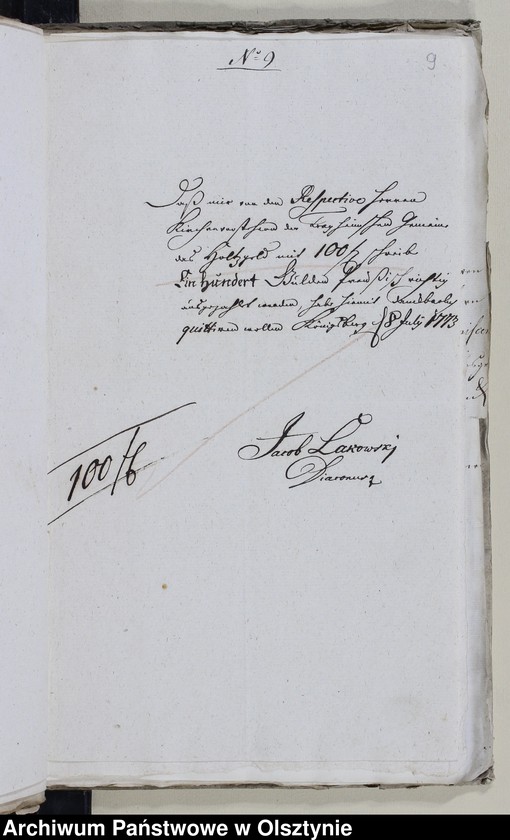 No 9
9
Daß mir von den Respective Herren
Kirchenvorstehern der Gemeine
das Holtzgeld mit 100 f schreibe
Ein Hundert Gulden Preußisch richtig
ausgezahlt worden, habe hiemit dankbarlich
quittiren wollen Königsberg d 8 July 1773
Jacob Lakowski
Diaconus
100 f
Archiwum Państwowe w Olsztynie